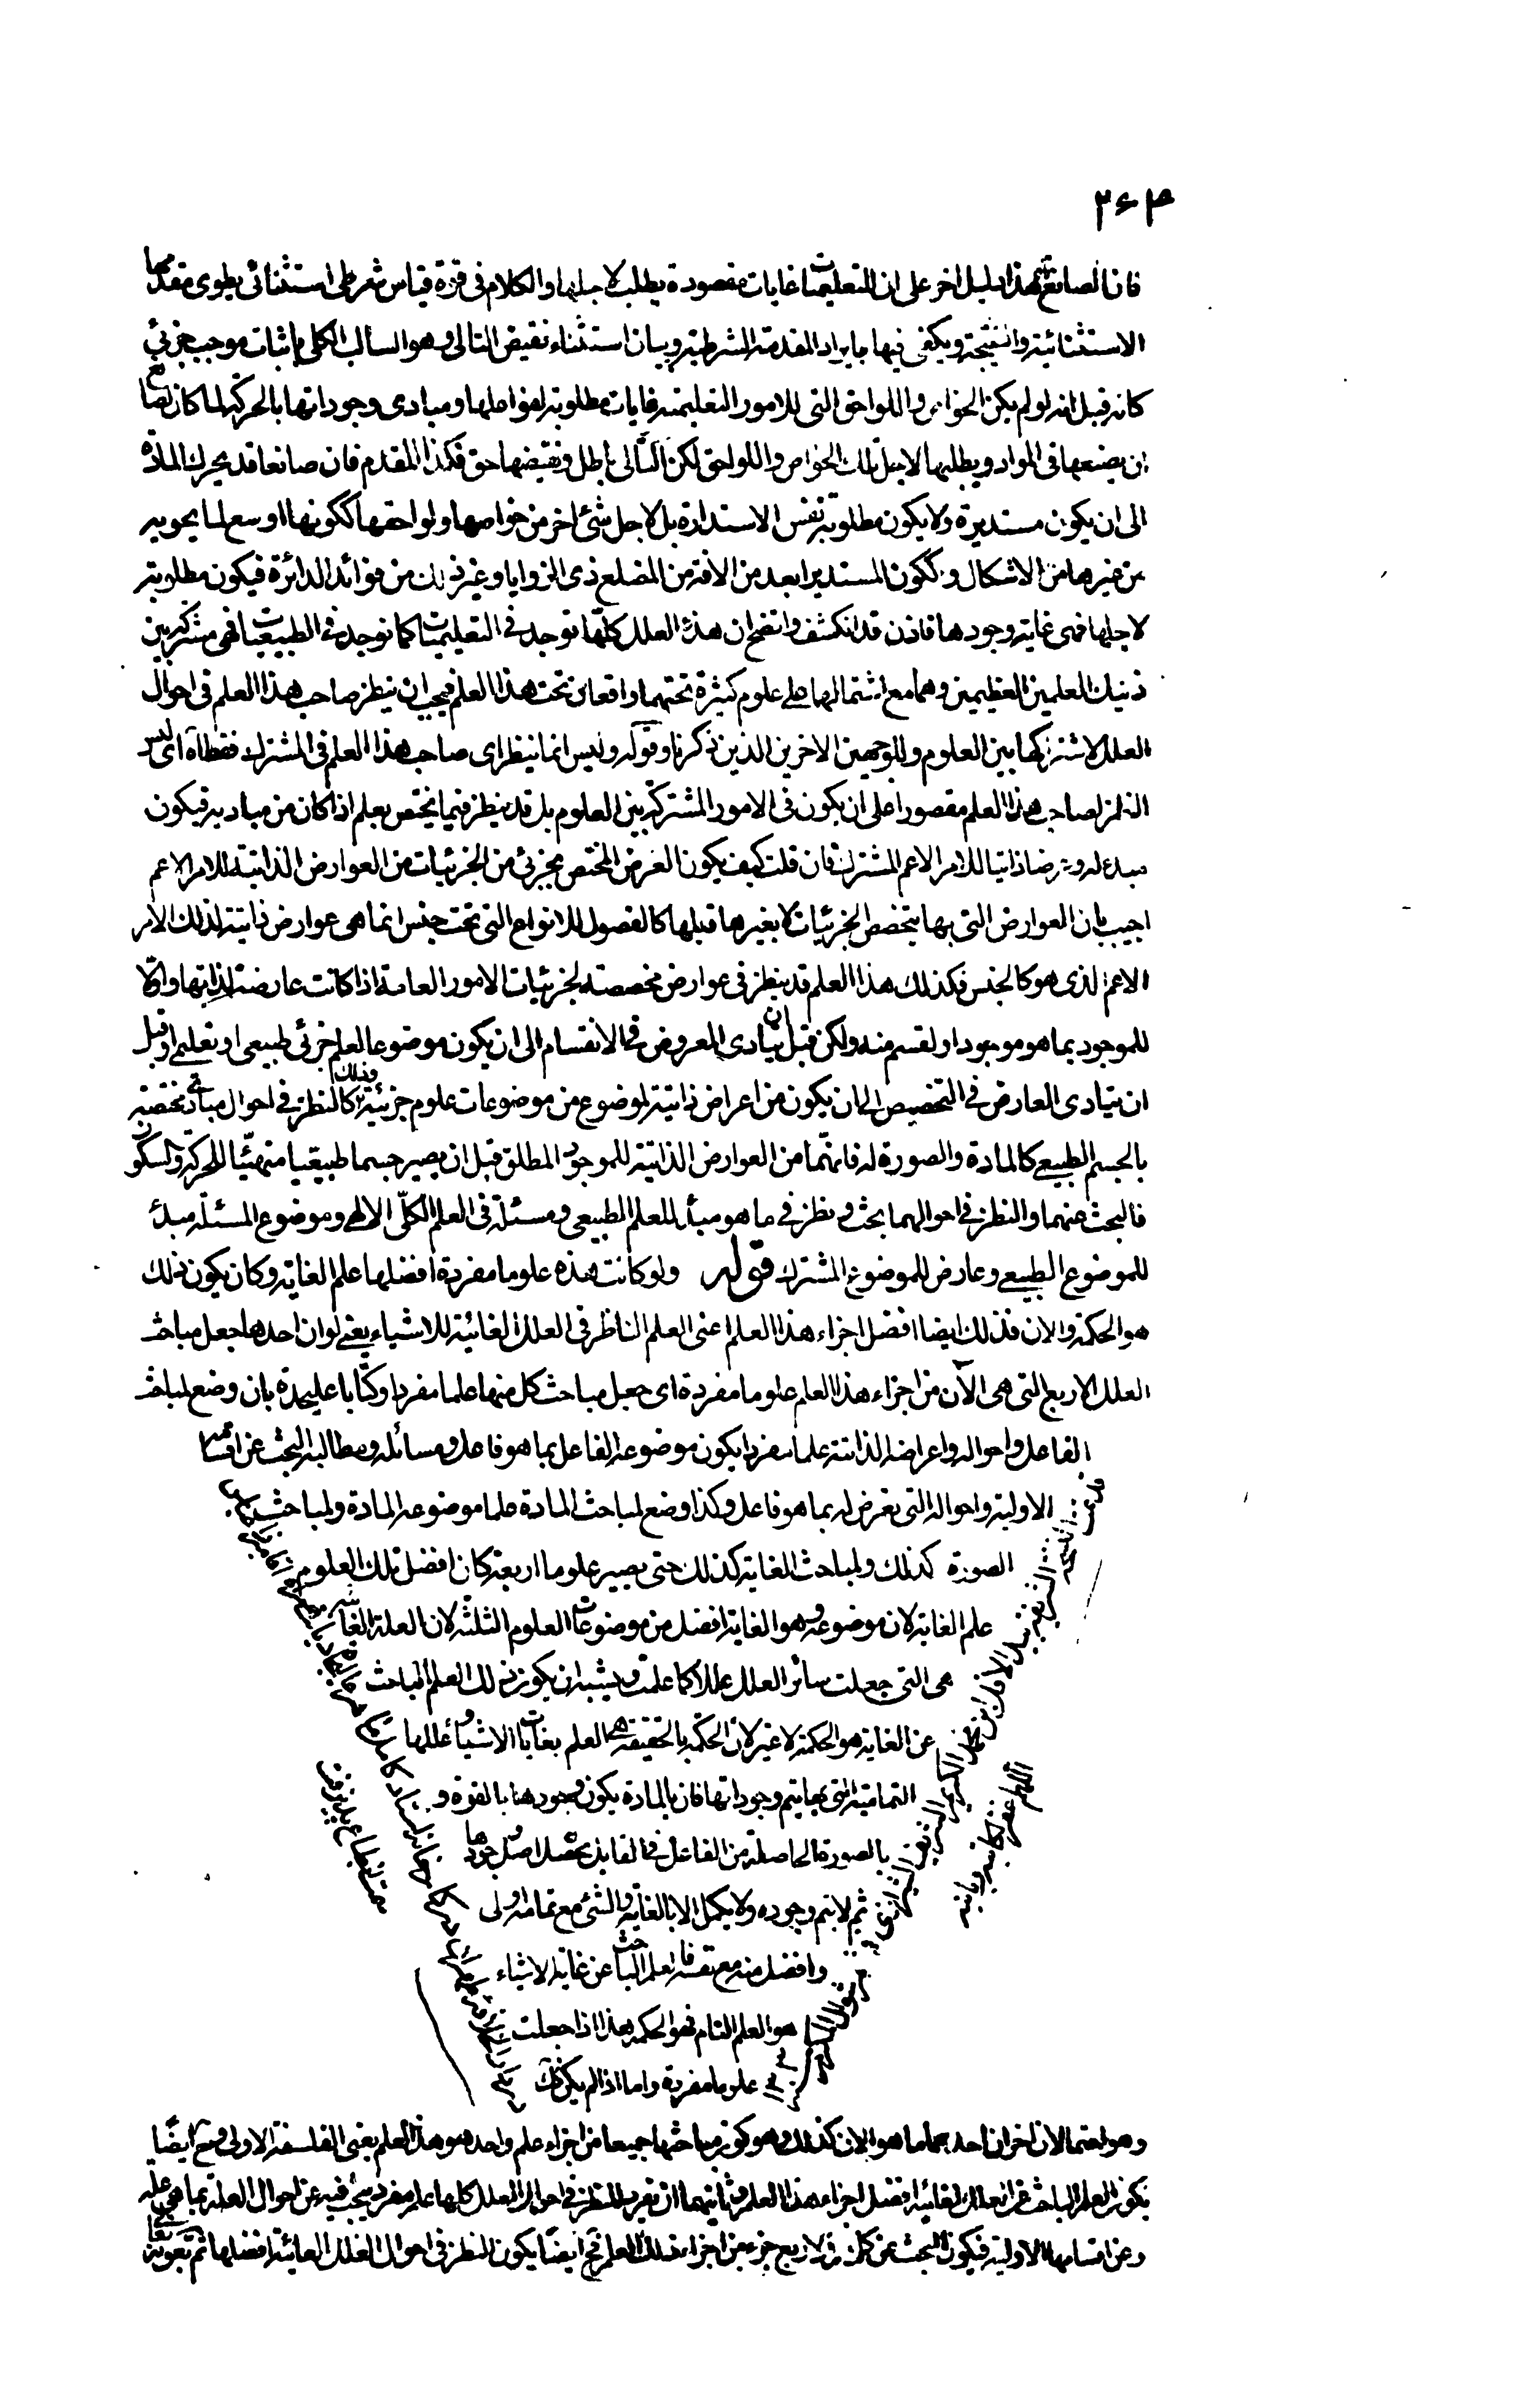 ۲۶۳
فان الصانع هذا دليل اخر على ان للتعليميات غايات مقصودة يطلب لاجلها والكلام فى قوة قياس شرطى استثنائى يطوى مقدمتها
الاستثنائية والنتيجة ويكفى فيها بايراد المقدمة الشرطية وبيان استثناء نقيض التالى وهو السالب الكلى باثبات موجب جزئى
كانه قيل انه لو لم يكن الخواص واللواحق التى للامور التعليمية غايات مطلوبة لفواعلها ومبادى وجوداتها بالحركة لما كان لصانع
ان يصنعها فى المواد ويطلبها لاجل تلك الخواص واللواحق لكن التالى باطل ونقيضها حق فكذا المقدم فان صانعا قد يحرك المادة
الى ان يكون مستديرة ولا يكون مطلوبة نفس الاستدارة بل لاجل شئ اخر من خواصها ولواحقها ككونها اوسع لما يحويه
من غيرها من الاشكال وككون المستدير ابعد من الافة من المضلع ذى الزوايا وغير ذلك من فوائد الدائرة فيكون مطلوبة
لاجلها فهى غاية وجودها فاذن قد انكشف واتضح ان هذه العلل كلها توجد فى التعليميات كما توجد فى الطبيعيات فهى مشتركة بين
ذينك العلمين العظيمين وهما مع اشتمالها على علوم كثيرة تحتهما واقعان تحت هذا العلم فيجب ان ينظر صاحب هذا العلم فى احوال
العلل لاشتراكها بين العلوم وللوجهين الاخرين الذين ذكرنا وقوله وليس انما ينظر اى صاحب هذا العلم فى المشترك فقط آه اى ليس
النظر لصاحب هذا العلم مقصورا على ان يكون فى الامور المشتركة بين العلوم بل قد ينظر فيما يختص بعلم اذا كان من مباديه فيكون
مبدء له وعرضا ذاتيا للامر الاعم المشترك فان قلت كيف يكون العرض المختص بجزئى من الجزئيات من العوارض الذاتية للامر الاعم
اجيب بان العوارض التى بها يتخصص الجزئيات لا بغيرها قبلها كالفصول للانواع التى تحت جنس انما هى عوارض ذاتية لذلك الامر
الاعم الذى هو كالجنس فكذلك هذا العلم قد ينظر فى عوارض مخصصة لجزئيات الامور العامة اذا كانت عارضة لذاتها واولا
للموجود بما هو موجود او لقسم منه ولكن قبل ان يتادى المعروض فى الانقسام الى ان يكون موضوعا لعلم جزئى طبيعى او تعليمى او قبل
ان يتادى العارض فى التخصيص الى ان يكون من اعراض ذاتية لموضوع من موضوعات علوم جزئية وذلك كالنظر فى احوال مبادى مختصة
بالجسم الطبيعى كالمادة والصورة له فانهما من العوارض الذاتية للموجود المطلق قبل ان يصير جسما طبيعيا متهيئا للحركة والسكون
فالبحث عنهما والنظر فى احوالهما بحث ونظر فى ما هو مبدأ للعلم الطبيعى ومسئلة فى العلم الكلى الالهى وموضوع المسئلة مبدء
للموضوع الطبيعى وعارض للموضوع المشترك قوله ولو كانت هذه علوما مفردة افضلها علم الغاية وكان يكون ذلك
هو الحكمة والان فذلك ايضا افضل اجزاء هذا العلم اعنى العلم الناظر فى العلل الغائية للاشياء يعنى لو ان احدها جعل مباحث
العلل الاربع التى هى الآن من اجزاء هذا العلم علوما مفردة اى جعل مباحث كل منها علما مفردا وكتابا عليحدة بان وضع لمباحث
الفاعل واحواله واعراضه الذاتية علما مفردا يكون موضوعه الفاعل بما هو فاعل ومسائله ومطالبه البحث عن اقسامه
الاولية واحواله التى يعرض له بما هو فاعل وكذا وضع لمباحث المادة علما موضوعه المادة ولمباحث
الصورة كذلك ولمباحث الغاية كذلك حتى يصير علوما اربعة كان افضل تلك العلوم
علم الغاية لان موضوعه وهو الغاية افضل من موضوعات العلوم الثلثة لان العلة الغائية
هى التى جعلت سائر العلل عللا كما علمت ويشبه ان يكون ذلك العلم الباحث
عن الغاية هو الحكمة لا غير لان الحكمة بالحقيقة هى العلم بغايات الاشياء وعللها
التمامية التى بها يتم وجوداتها فان بالمادة يكون وجودها بالقوة و
بالصورة الحاصلة من الفاعل فى القابل يحصل اصل وجودها
ثم لا يتم وجوده ولا يكمل الا بالغاية والشئ مع تمامه اولى
وافضل منه مع نقصه فالعلم الباحث عن غاية الاشياء
هو العلم التام فهو الحكمة هذا اذا جعلت
علوما مفردة واما اذا لم يكن كذلك
اللهم اغفر لكاتبه وبانيه
وهو احتمالان اخران احدهما ما هو الان كذلك وهو كون مباحثها جميعا من اجزاء علم واحد هو هذا العلم يعنى الفلسفة الاولى وح ايضا
يكون العلم الباحث عن العلل الغائية افضل اجزاء هذا العلم وثانيهما ان يفرد للنظر فى احوال العلل كلها علم مفرد يبحث فيه عن احوال العلة بما هى علة
وعن اقسامها الاولية فيكون البحث عن كل من الاربع جزء من اجزاء ذلك العلم فح ايضا يكون النظر فى احوال العلل الغائية افضلها ثم